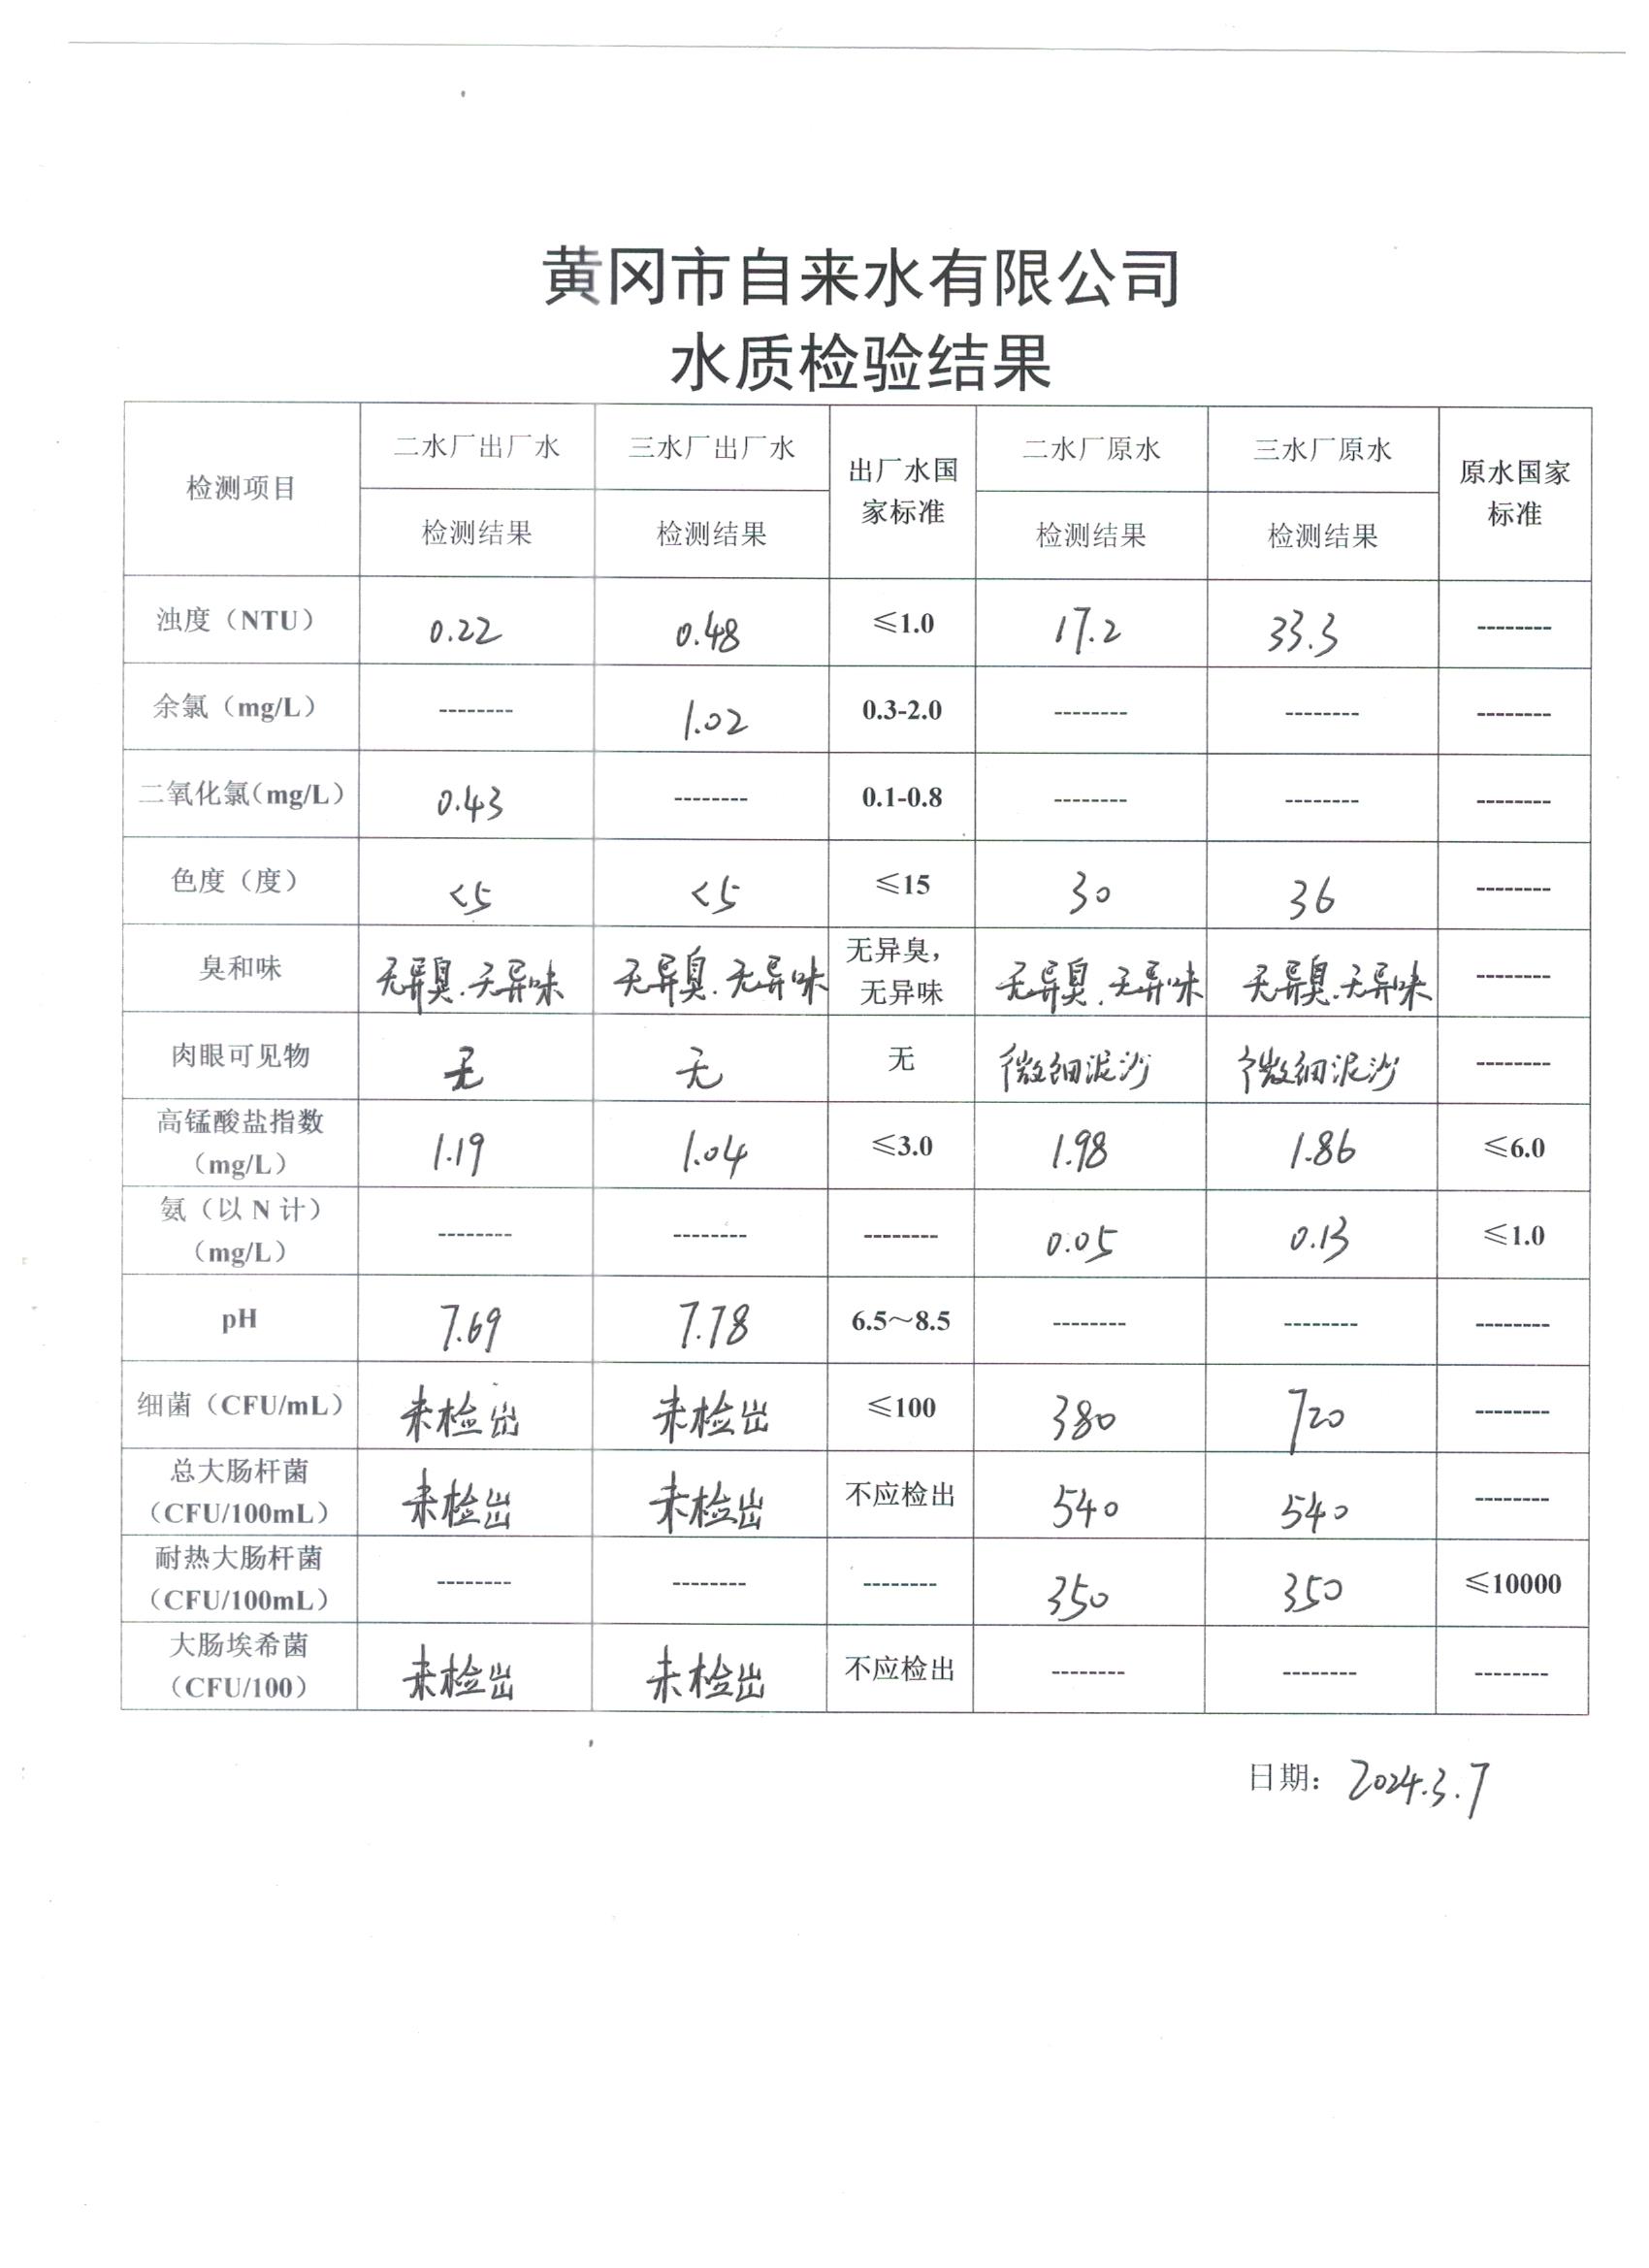 黄冈市自来水有限公司
水质检验结果
检测项目 二水厂出厂水 三水厂出厂水 出厂水国家标准 二水厂原水 三水厂原水 原水国家标准
检测结果 检测结果 检测结果 检测结果
浊度（NTU） 0.22 0.48 ≤1.0 17.2 33.3 --------
余氯（mg/L） -------- 1.02 0.3-2.0 -------- -------- --------
二氧化氯（mg/L） 0.43 -------- 0.1-0.8 -------- -------- --------
色度（度） <5 <5 ≤15 30 36 --------
臭和味 无异臭.无异味 无异臭.无异味 无异臭，无异味 无异臭.无异味 无异臭.无异味 --------
肉眼可见物 无 无 无 微细泥沙 微细泥沙 --------
高锰酸盐指数（mg/L） 1.19 1.04 ≤3.0 1.98 1.86 ≤6.0
氨（以 N 计）（mg/L） -------- -------- -------- 0.05 0.13 ≤1.0
pH 7.69 7.78 6.5～8.5 -------- -------- --------
细菌（CFU/mL） 未检出 未检出 ≤100 380 720 --------
总大肠杆菌（CFU/100mL） 未检出 未检出 不应检出 540 540 --------
耐热大肠杆菌（CFU/100mL） -------- -------- -------- 350 350 ≤10000
大肠埃希菌（CFU/100） 未检出 未检出 不应检出 -------- -------- --------
日期：2024.3.7